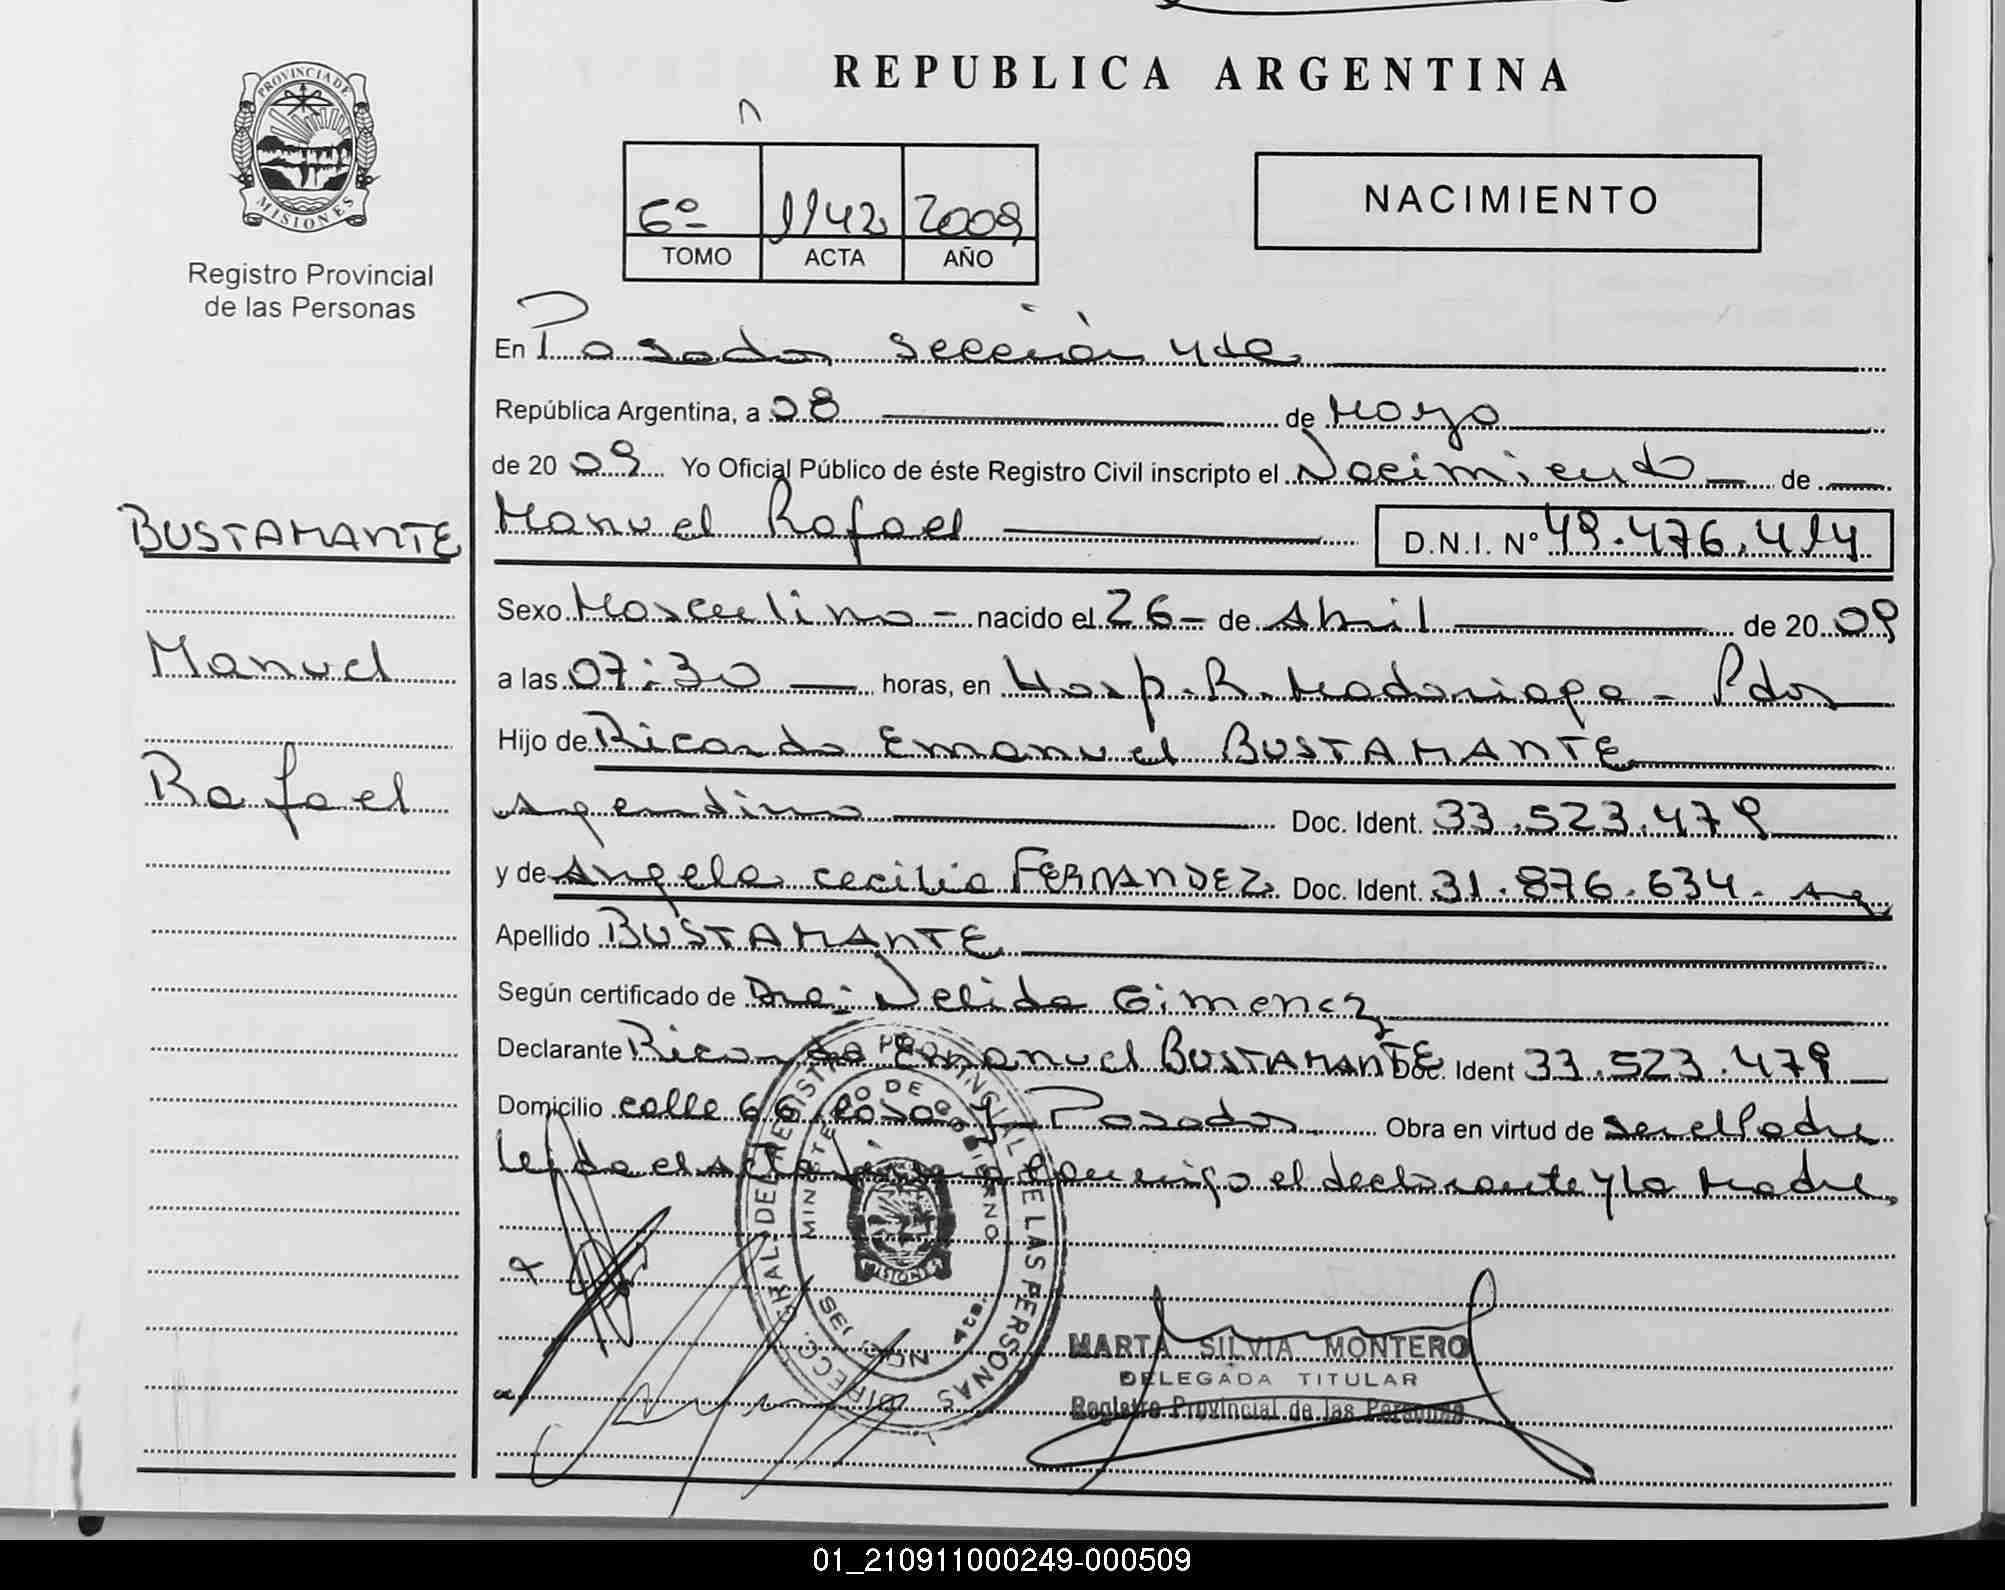 REPUBLICA ARGENTINA
PROVINCIA DE
MISIONES
Registro Provincial
de las Personas
6º 1142 2009
TOMO ACTA AÑO
NACIMIENTO
En Posadas sección 4ta
República Argentina, a 08 de Mayo
de 20 09 Yo Oficial Público de éste Registro Civil inscripto el Nacimiento de
BUSTAMANTE
Manuel
Rafael
Manuel Rafael D.N.I. Nº 49.476.414
Sexo Masculino - nacido el 26 - de Abril de 20 09
a las 07:30 horas, en Hosp. R. Madariaga - Pdas
Hijo de Ricardo Emanuel BUSTAMANTE
Argentino Doc. Ident. 33.523.479
y de Angela Cecilia FERNANDEZ Doc. Ident. 31.876.634. Arg
Apellido BUSTAMANTE
Según certificado de Dra: Nelida Gimenez
Declarante Ricardo Emanuel BUSTAMANTE Doc. Ident 33.523.479
Domicilio calle 66 casa Posadas. Obra en virtud de ser el Padre
leida el acta conmigo el declarante y la Madre.
DIRECC. GRAL. DEL REGISTRO PROVINCIAL DE LAS PERSONAS
MINISTERIO DE GOBIERNO
MISIONES
SECCION 4ta.
MARTA SILVIA MONTERO
DELEGADA TITULAR
Registro Provincial de las Personas
01_210911000249-000509